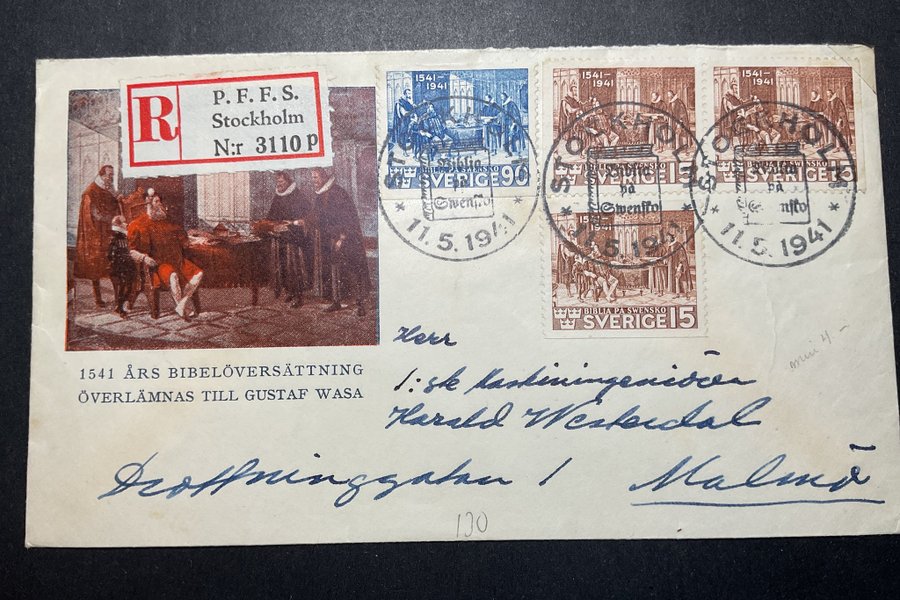 R
P. F. F. S.
Stockholm
N:r 3110 p
1541-
1941
BIBLIA PÅ SWENSKO
SVERIGE 90
1541-
1941
BIBLIA PÅ SWENSKO
SVERIGE 15
1541-
1941
BIBLIA PÅ SWENSKO
15
BIBLIA PÅ SWENSKO
SVERIGE 15
STOCKHOLM
Biblia
på
Swensko
* 11.5.1941 *
STOCKHOLM
Biblia
på
Swensko
* 11.5.1941
STOCKHOLM
på
* 11.5.1941 *
1541 ÅRS BIBELÖVERSÄTTNING
ÖVERLÄMNAS TILL GUSTAF WASA
Herr
1:ste Maskiningeniören
Harald Westerdal
Drottninggatan 1 Malmö
130